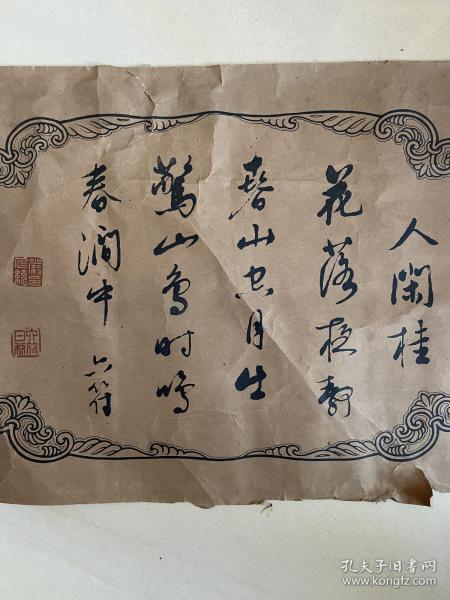 人閑桂
花落夜靜
春山空月出
驚山鳥时鳴
春澗中 六符
孔夫子旧书网
www.kongfz.com